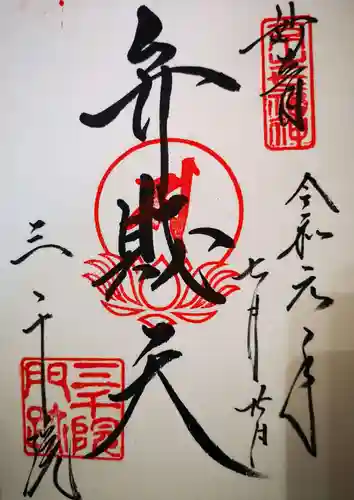 妙音
令和元年
七月廿日
弁財天
三千院
三千院
門跡